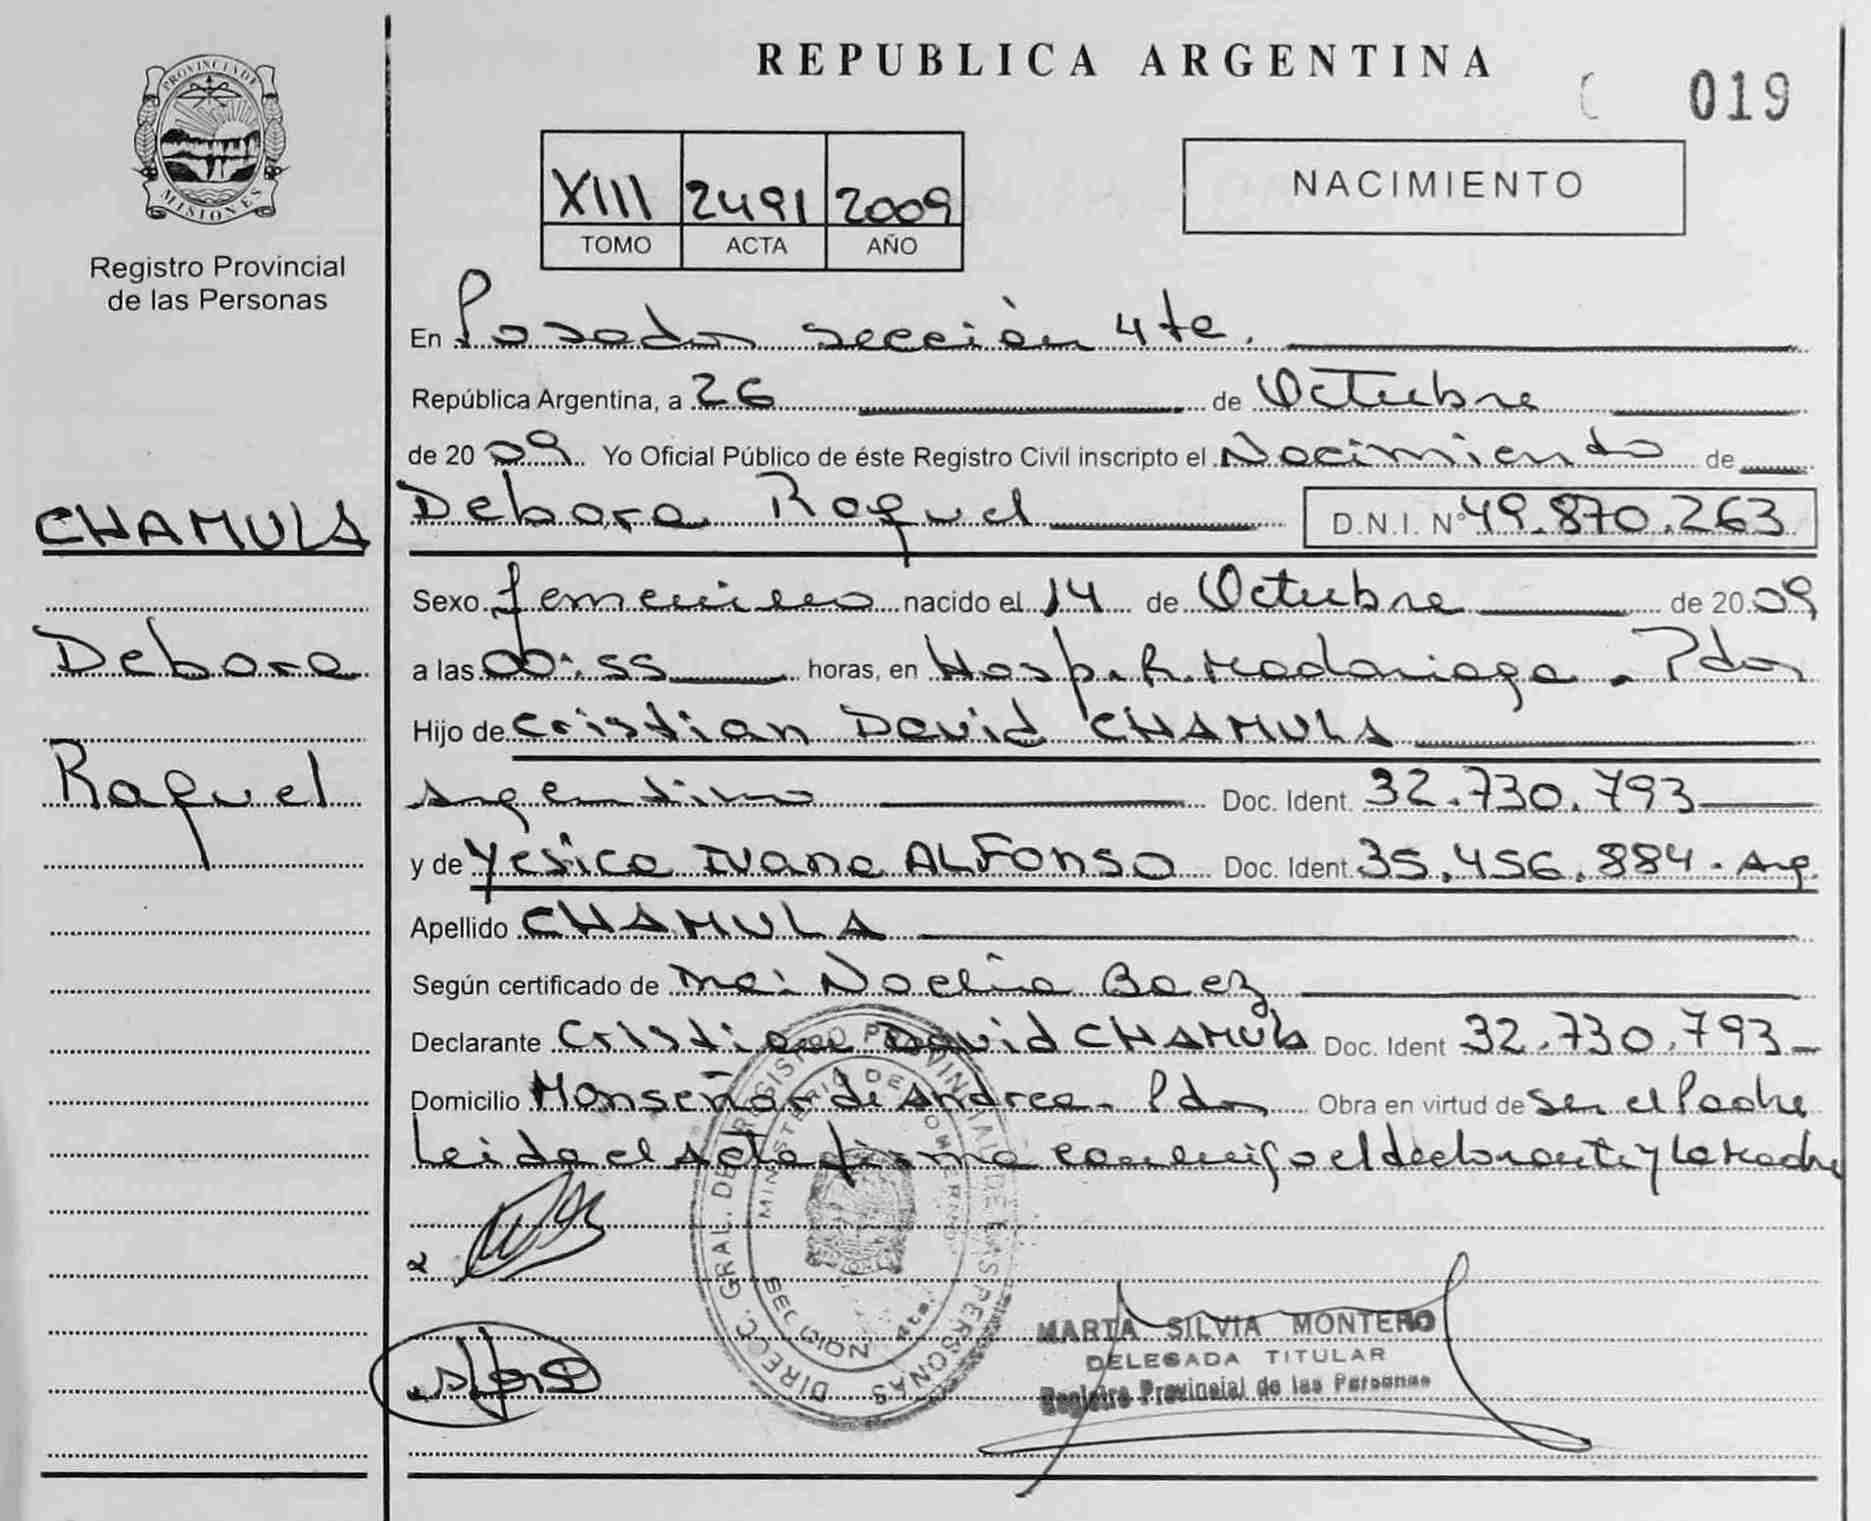 REPUBLICA ARGENTINA
019
PROVINCIA DE
MISIONES
Registro Provincial
de las Personas
XIII 2491 2009
TOMO ACTA AÑO
NACIMIENTO
En Posadas sección 4ta.
República Argentina, a 26 de Octubre
de 2009 Yo Oficial Público de éste Registro Civil inscripto el Nacimiento de
CHAMULA
Debora Raquel D.N.I. Nº 49.870.263
Sexo femenino nacido el 14 de Octubre de 2009
Debora
a las 00:55 horas, en Hosp. R. Madariaga - Pdas
Hijo de Cristian David CHAMULA
Raquel
argentino Doc. Ident. 32.730.793
y de Yesica Ivana ALFONSO Doc. Ident. 35.456.884 - Arg.
Apellido CHAMULA
Según certificado de Noelia Baez
Declarante Cristian David CHAMULA Doc. Ident 32.730.793
Domicilio Monseñor de Andrea - Pdas Obra en virtud de ser el Padre
Leida el Acta firma conmigo el declarante y la Madre
DIRECC. GRAL. DE REGISTRO PROVINCIAL DE LAS PERSONAS
MINISTERIO DE GOBIERNO
SECCION 4ta.
MARTA SILVIA MONTERO
DELEGADA TITULAR
Registro Provincial de las Personas